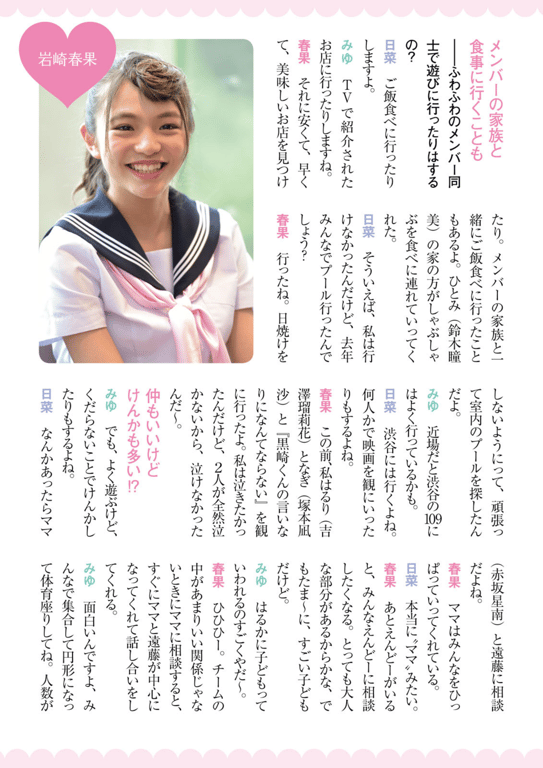 岩崎春果
メンバーの家族と
食事に行くことも
――ふわふわのメンバー同
士で遊びに行ったりはする
の?
日菜 ご飯食べに行ったり
しますよ。
みゆ TVで紹介された
お店に行ったりしますね。
春果 それに安くて、早く
て、美味しいお店を見つけ
たり。メンバーの家族と一
緒にご飯食べに行ったこと
もあるよ。ひとみ(鈴木瞳
美)の家の方がしゃぶしゃ
ぶを食べに連れていってく
れた。
日菜 そういえば、私は行
けなかったんだけど、去年
みんなでプール行ったんで
しょう?
春果 行ったね。日焼けを
しないようにって、頑張っ
て室内のプールを探したん
だよ。
みゆ 近場だと渋谷の109に
はよく行っているかも。
日菜 渋谷には行くよね。
何人かで映画を観にいった
りもするよね。
春果 この前、私はるり(吉
澤瑠莉花)となぎ(塚本凪
沙)と『黒崎くんの言いな
りになんてならない』を観
に行ったよ。私は泣きたかっ
たんだけど、2人が全然泣
かないから、泣けなかった
んだ〜。
仲もいいけど
けんかも多い!?
みゆ でも、よく遊ぶけど、
くだらないことでけんかし
たりもするよね。
日菜 なんかあったらママ
(赤坂星南)と遠藤に相談
だよね。
春果 ママはみんなをひっ
ぱっていってくれている。
日菜 本当に“ママ”みたい。
春果 あとえんどーがいる
と、みんなえんどーに相談
したくなる。とっても大人
な部分があるからかな、で
もたま〜に、すごい子ども
だけど。
みゆ はるかに子どもって
いわれるのすごくやだ〜。
春果 ひひひー。チームの
中があまりいい関係じゃな
いときにママに相談すると、
すぐにママと遠藤が中心に
なってくれて話し合いをし
てくれる。
みゆ 面白いんですよ、み
んなで集合して円形になっ
て体育座りしてね。人数が